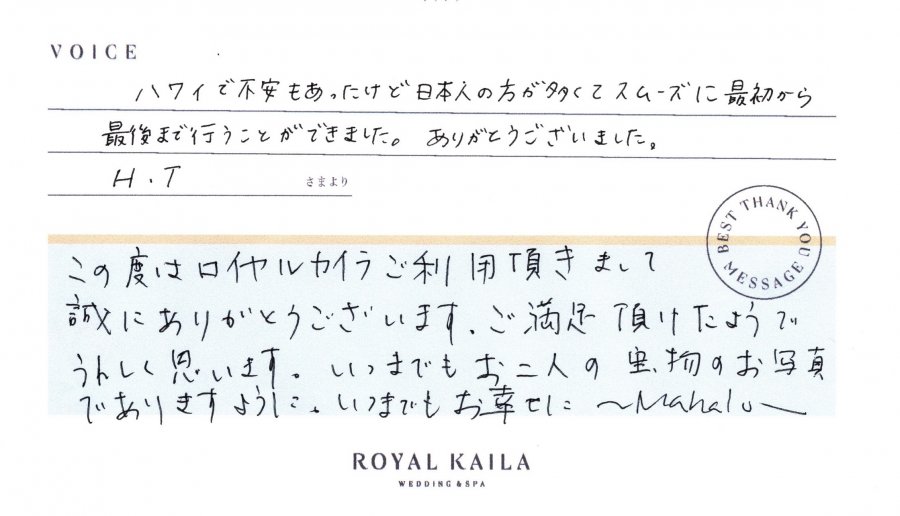 VOICE
ハワイで不安もあったけど日本人の方が多くてスムーズに最初から
最後まで行うことができました。ありがとうございました。
H.T さまより
BEST THANK YOU MESSAGE
この度はロイヤルカイラご利用頂きまして
誠にありがとうございます。ご満足頂けたようで
うれしく思います。いつまでもお二人の宝物のお写真
でありますように。いつまでもお幸せに 〜Mahalo〜
ROYAL KAILA
WEDDING & SPA